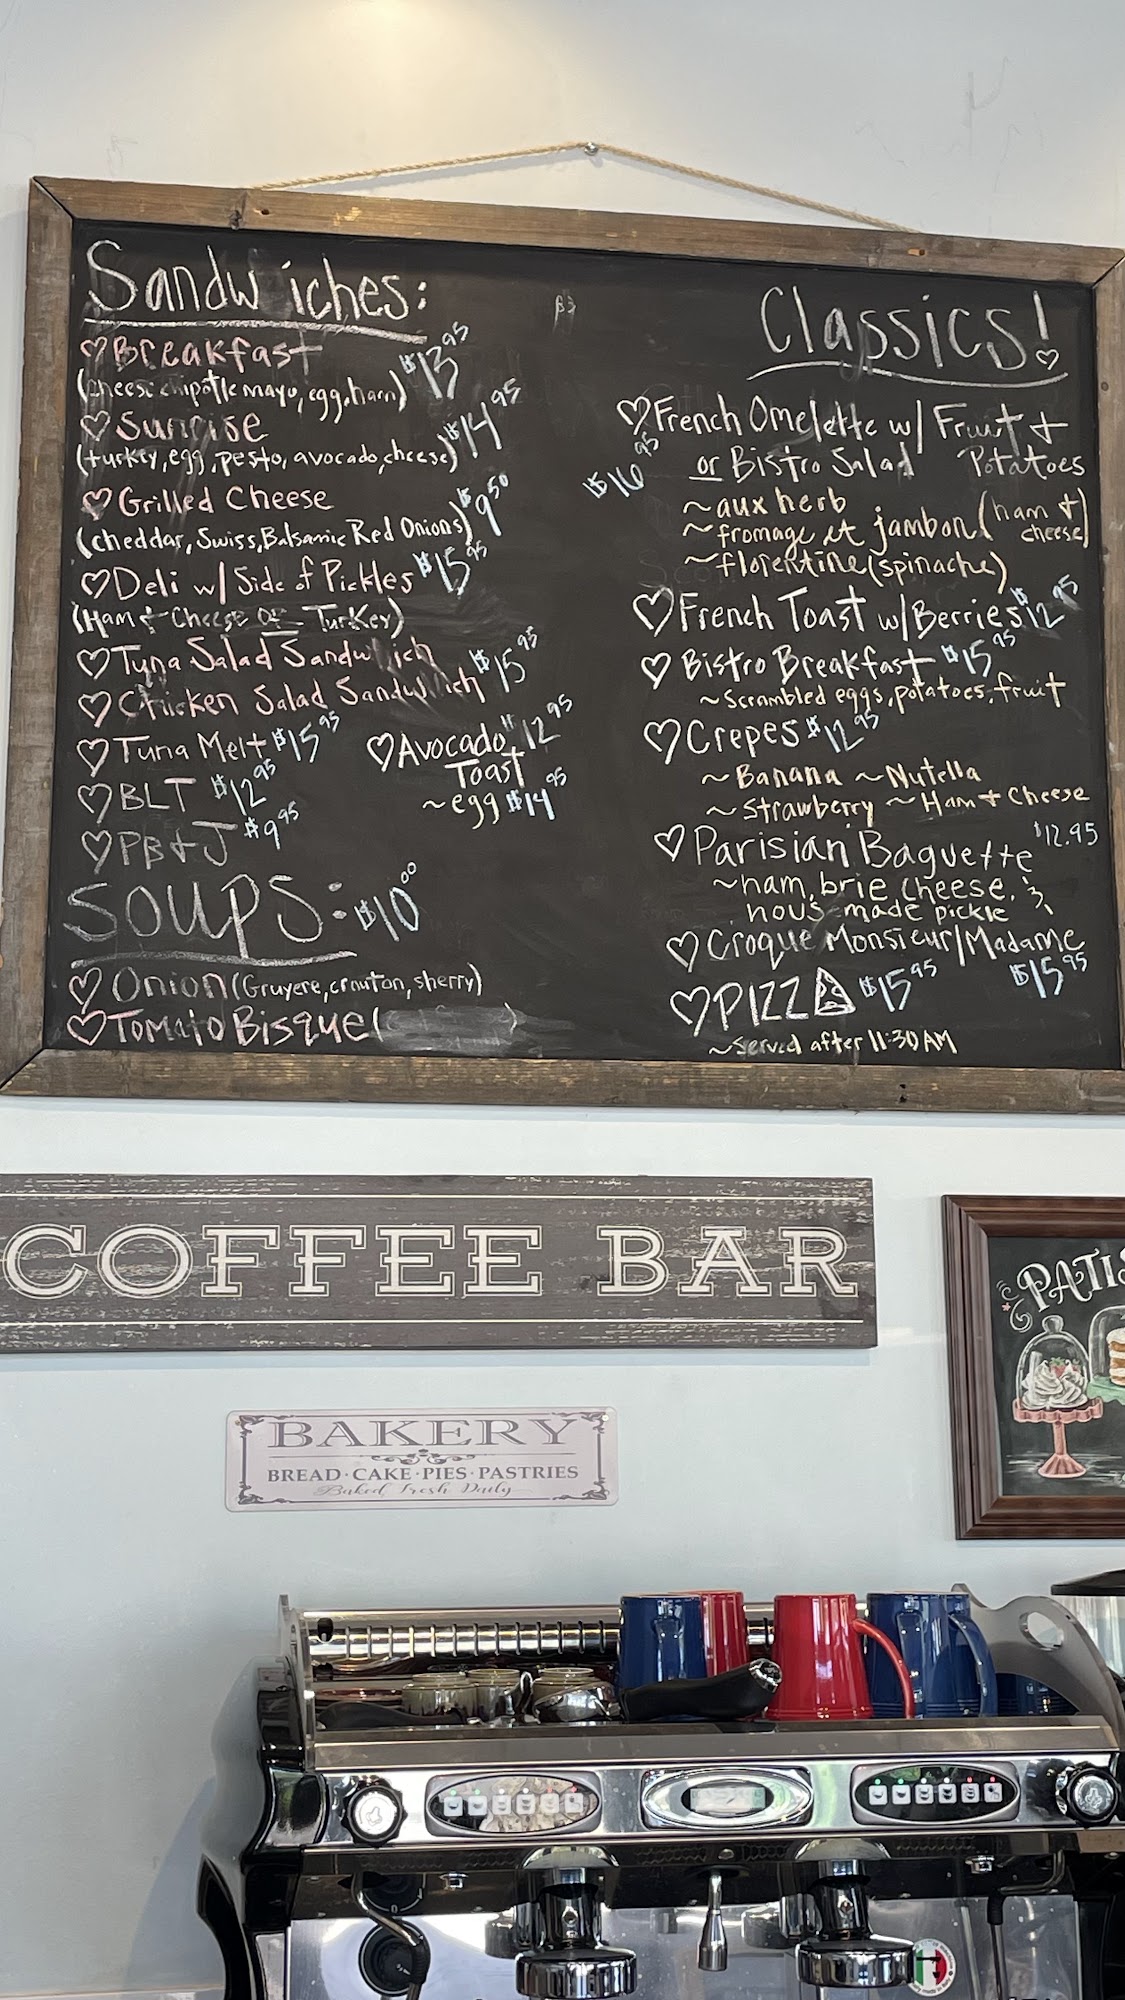 Sandwiches:
♡Breakfast $13.95
(cheese chipotle mayo, egg, ham)
♡Sunrise $14.95
(turkey, egg, pesto, avocado, cheese)
♡Grilled Cheese $9.50
(cheddar, Swiss, Balsamic Red Onions)
♡Deli w/ Side of Pickles $15.95
(Ham + Cheese or Turkey)
♡Tuna Salad Sandwich
♡Chicken Salad Sandwich $15.95
♡Tuna Melt $15.95
♡BLT $12.95
♡PB+J $9.95
♡Avocado 12.95
Toast
~egg $14.95
SOUPS: $10.00
♡Onion (Gruyere, crouton, sherry)
♡Tomato Bisque (
Classics!
♡French Omelette w/ Fruit +
or Bistro Salad Potatoes
$16.95
~aux herb
~fromage et jambon (ham +
cheese)
~florentine (spinache)
♡French Toast w/Berries $12.95
♡Bistro Breakfast $15.95
~Scrambled eggs, potatoes, fruit
♡Crepes $12.95
~Banana ~Nutella
~Strawberry ~Ham + Cheese
♡Parisian Baguette $12.95
~ham, brie cheese, &
hous-made pickle
♡Croque Monsieur/Madame
$15.95
♡PIZZA $15.95
~Served after 11:30AM
COFFEE BAR
BAKERY
BREAD·CAKE·PIES·PASTRIES
Baked Fresh Daily
PATIS